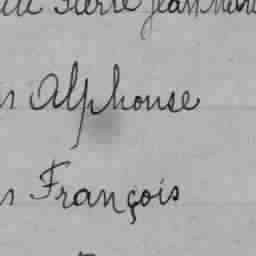 Pierre Jean Marie
Alphonse
François